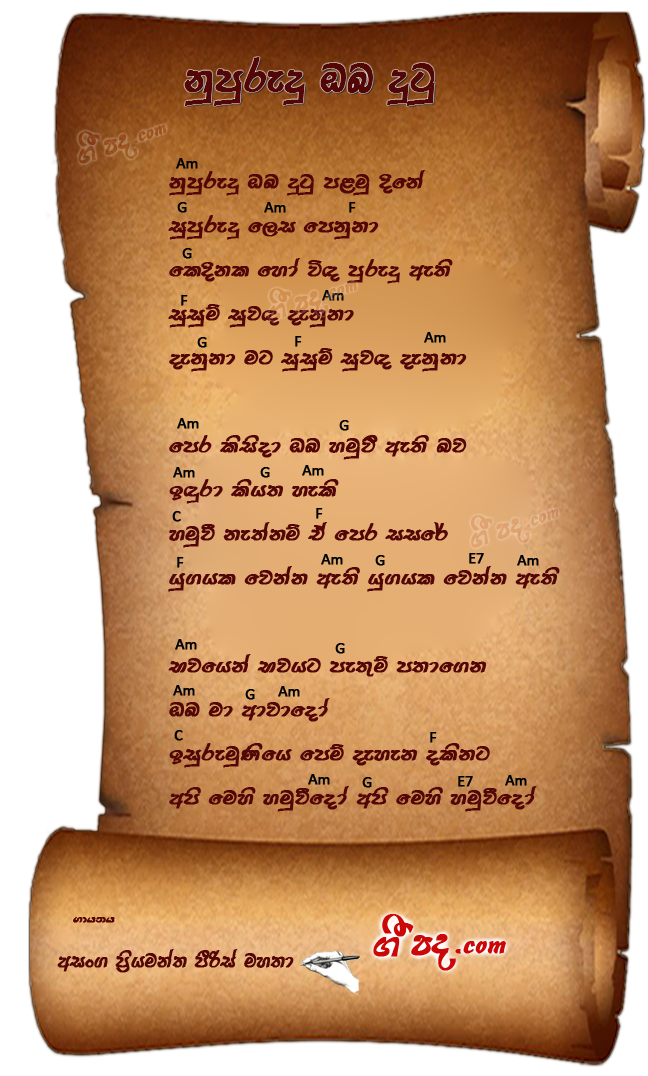 නුපුරුදු ඔබ දුටු
ගී පද.com
Am
නුපුරුදු ඔබ දුටු පළමු දිනේ
G Am F
සුපුරුදු ලෙස පෙනුනා
G
කෙදිනක හෝ විඳ පුරුදු ඇති
F Am
සුසුම් සුවඳ දැනුනා
ගී පද.com
G F Am
දැනුනා මට සුසුම් සුවඳ දැනුනා
Am G
පෙර කිසිදා ඔබ හමුවී ඇති බව
Am G Am
ඉඳුරා කියත හැකි
C F
හමුවී නැත්නම් ඒ පෙර සසරේ
ගී පද.com
F Am G E7 Am
යුගයක වෙන්න ඇති යුගයක වෙන්න ඇති
Am G
භවයෙන් භවයට පැතුම් පතාගෙන
Am G Am
ඔබ මා ආවාදෝ
C F
ඉසුරුමුණියෙ පෙම් දැහැන දකිනට
Am G E7 Am
අපි මෙහි හමුවීදෝ අපි මෙහි හමුවීදෝ
ගායනය
අසංග ප්‍රියමන්ත පීරිස් මහතා
ගී පද.com